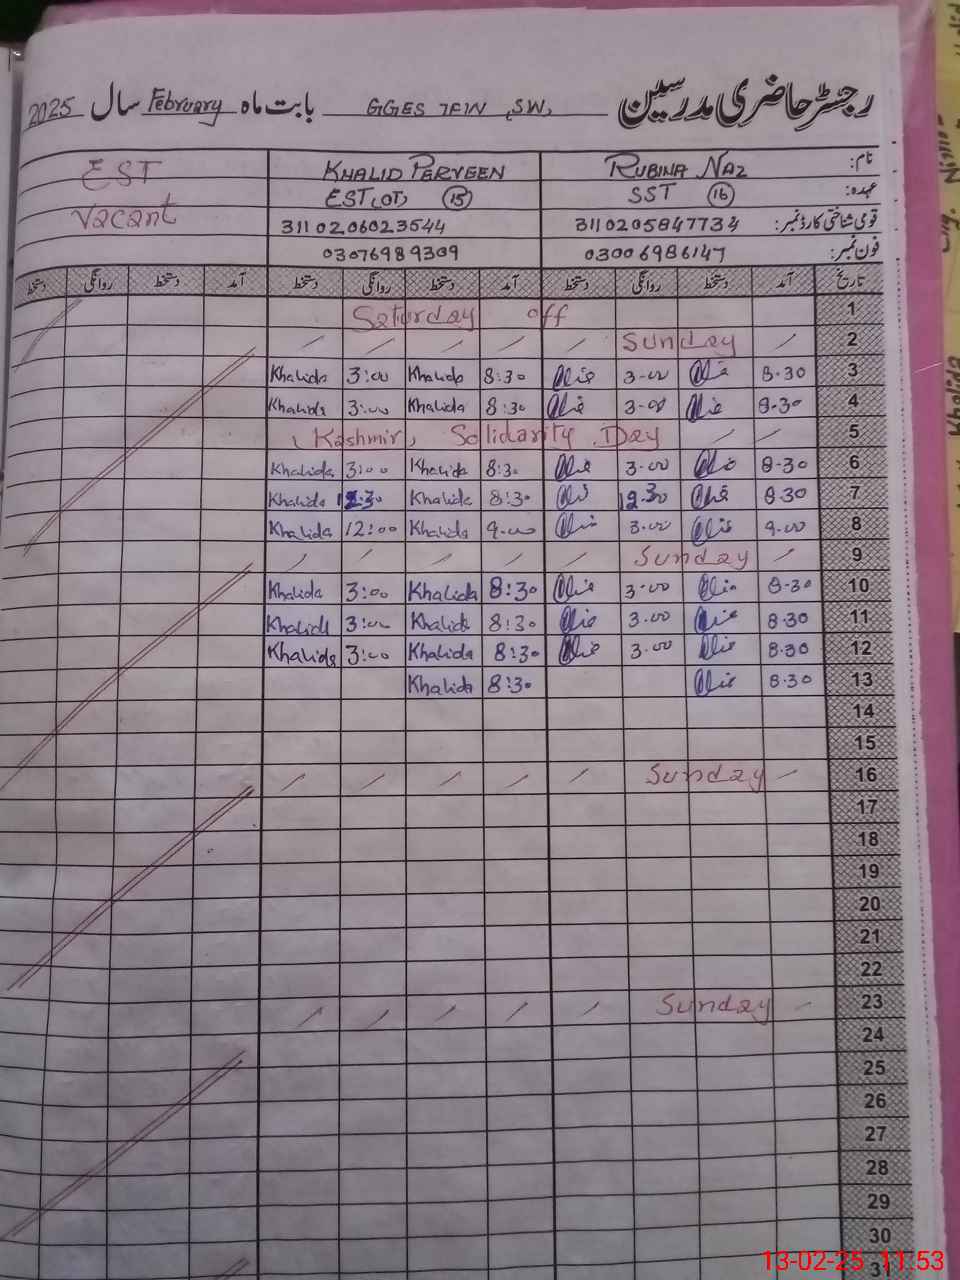 رجسٹر حاضری مدرسین GGES 7F1N ,SW, بابت ماہ February سال 2025
نام: RUBINA NAZ KHALID PERVEEN EST
عہدہ: SST (16) EST(OT) (15) Vacant
قومی شناختی کارڈ نمبر: 3110205847734 3110206023544
فون نمبر: 03006986147 03076989309
تاریخ آمد دستخط روانگی دستخط آمد دستخط روانگی دستخط آمد دستخط روانگی دستخط
1 Saturday off
2 Sunday
3 8.30 3.00 8:30 Khalida 3:00 Khalida
4 8.30 3.00 8:30 Khalida 3:00 Khalida
5 (Kashmir) Solidarity Day
6 8.30 3.00 8:30 Khalida 3:00 Khalida
7 8.30 12.30 8:30 Khalida 12:30 Khalida
8 9.00 3.00 9.00 Khalida 12:00 Khalida
9 Sunday
10 8.30 3.00 8:30 Khalida 3:00 Khalida
11 8.30 3.00 8:30 Khalida 3:00 Khalida
12 8.30 3.00 8:30 Khalida 3:00 Khalida
13 8.30 8:30 Khalida
14
15
16 Sunday
17
18
19
20
21
22
23 Sunday
24
25
26
27
28
29
30
31
13-02-25 11:53